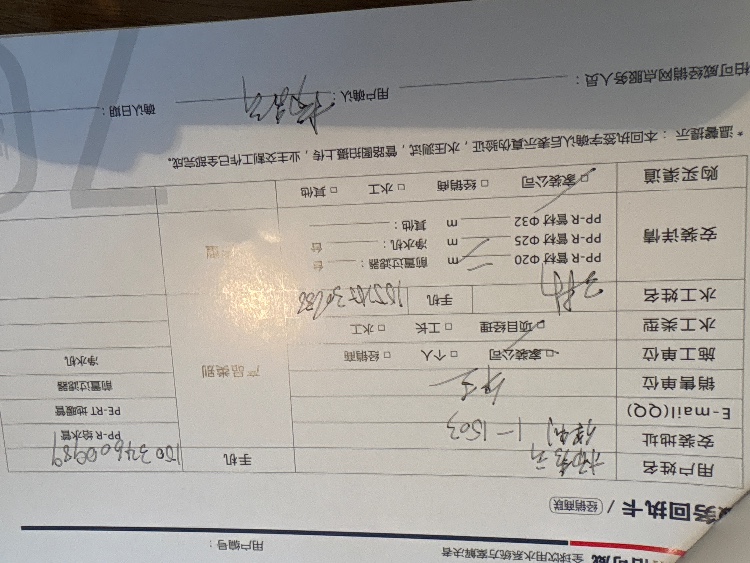 全球饮用水系统方案解决者
用户编号：
务回执卡 / 经销商联
用户姓名
手机
安装地址 1-1503
PP-R 给水管
E-mail(QQ)
PE-RT 地暖管
销售单位
前置过滤器
施工单位 □家装公司 □个人 □经销商
产品类别
净水机
水工类型 □项目经理 □工长 □水工
水工姓名
手机
安装详情
PP-R 管材 Φ20 m 前置过滤器： 台
PP-R 管材 Φ25 m 净水机： 台
PP-R 管材 Φ32 m 其他：
购买渠道 □家装公司 □经销商 □水工 □其他
* 温馨提示：本回执签字确认后表示真伪验证，水压测试，管路图拍摄上传，业主交割工作已全部完成。
柏可威经销网点服务人员：
用户确认：
确认日期：